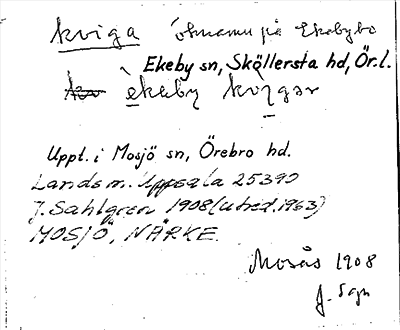 kviga öknamn på Ekebybo
Ekeby sn, Sköllersta hd, Ör.l.
èkeby kvìgər
Uppt. i Mosjö sn, Örebro hd.
Landsm. Uppsala 25390
J. Sahlgren 1908 (utred. 1963)
MOSJÖ, NÄRKE.
Mosås 1908
J. Sgn